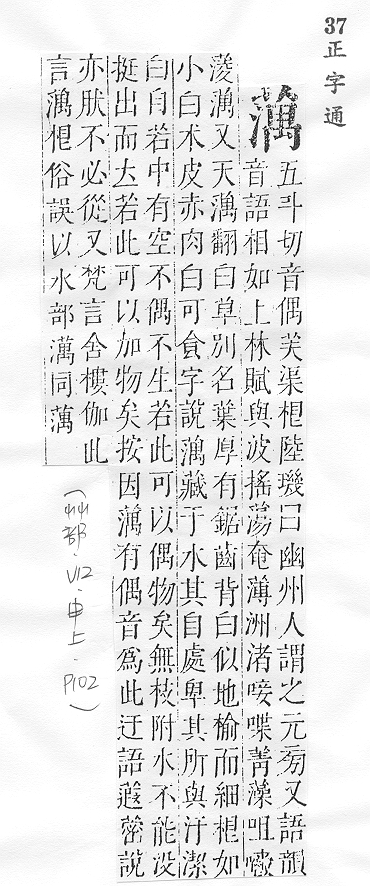 37
正字通
蕅
五斗切音偶芙渠根陸璣曰幽州人謂之元又語韻
音語相如上林賦與波搖蕩奄薄洲渚唼喋菁藻咀嚼
菱蕅又天蕅翻白草別名葉厚有鋸齒背白似地榆而細根如
小白朮皮赤肉白可食字說蕅藏于水其自處卑其所與汙潔
白自若中有空不偶不生若此可以偶物矣無枝附水不能沒
挺出而大若此可以加物矣按因蕅有偶音爲此迂語說
亦肰不必從又梵言舍樓伽此
言蕅根俗誤以水部澫同蕅
(艸部.V12.申上.P102)